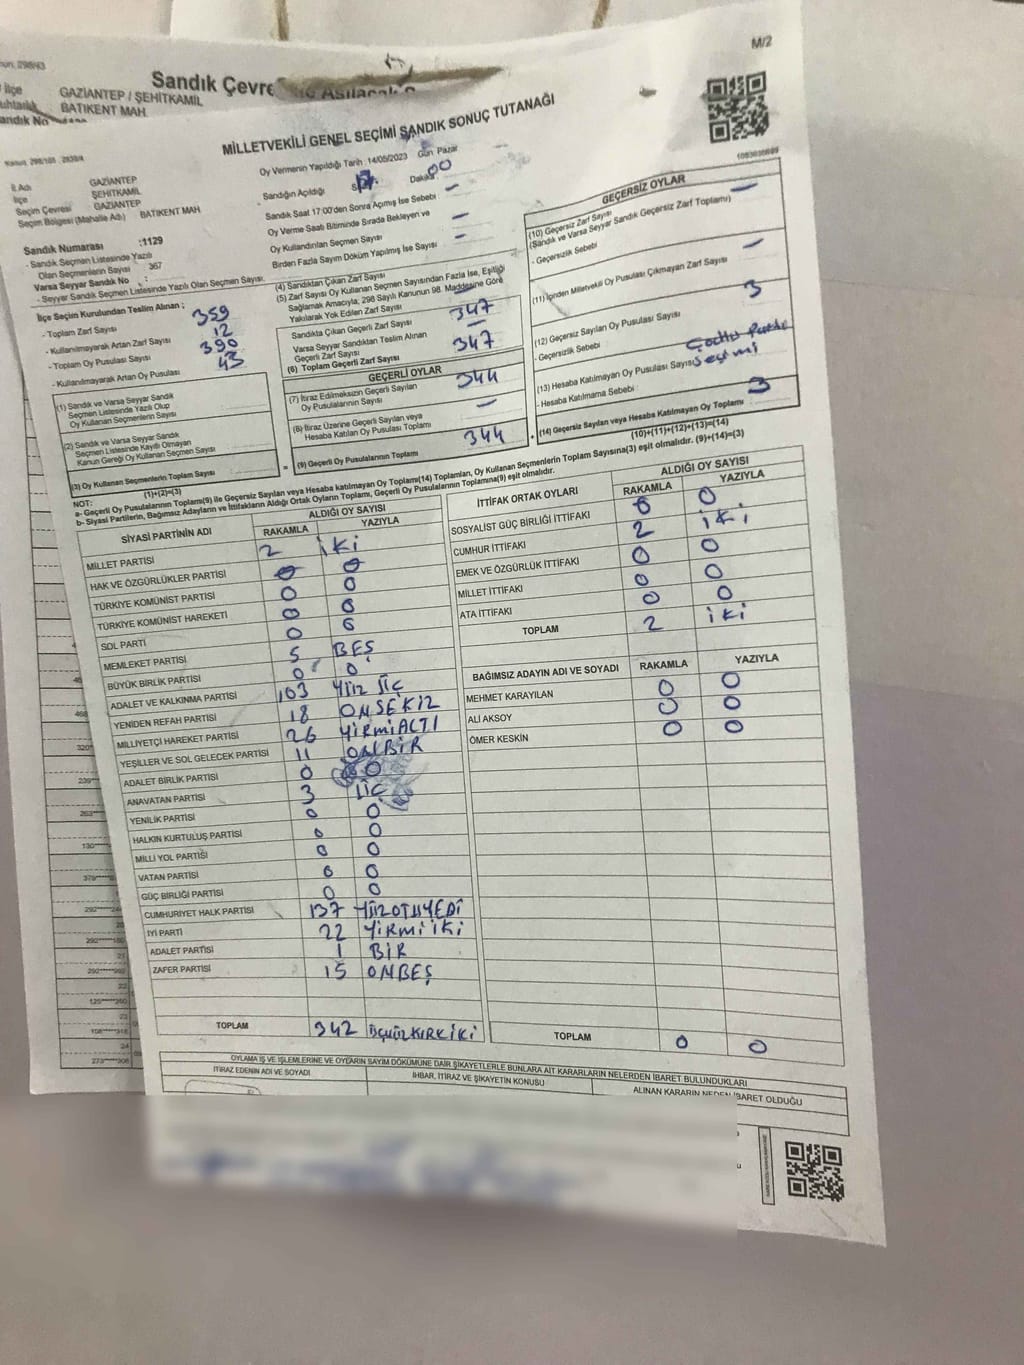 M/2
Sandık Çevre
GAZİANTEP / ŞEHİTKAMİL
BATIKENT MAH
MİLLETVEKİLİ GENEL SEÇİMİ SANDIK SONUÇ TUTANAĞI
İl Adı GAZİANTEP
İlçe ŞEHİTKAMİL
Seçim Çevresi GAZİANTEP
Seçim Bölgesi (Mahalle Adı) BATIKENT MAH
Sandık Numarası :1129
- Sandık Seçmen Listesinde Yazılı
Olan Seçmenlerin Sayısı : 367
Varsa Seyyar Sandık No :
- Seyyar Sandık Seçmen Listesinde Yazılı Olan Seçmen Sayısı:
İlçe Seçim Kurulundan Teslim Alınan ;
- Toplam Zarf Sayısı 359
- Kullanılmayarak Artan Zarf Sayısı 12
- Toplam Oy Pusulası Sayısı 390
- Kullanılmayarak Artan Oy Pusulası 43
(1) Sandık ve Varsa Seyyar Sandık
Seçmen Listesinde Yazılı Olup
Oy Kullanan Seçmenlerin Sayısı
(2) Sandık ve Varsa Seyyar Sandık
Seçmen Listesinde Kayıtlı Olmayan
Kanun Gereği Oy Kullanan Seçmen Sayısı
(3) Oy Kullanan Seçmenlerin Toplam Sayısı
(1)+(2)=(3)
Oy Vermenin Yapıldığı Tarih : 14/05/2023 Gün Pazar
Sandığın Açıldığı 17 Dakika 00
Sandık Saat 17:00'den Sonra Açılmış İse Sebebi
Oy Verme Saati Bitiminde Sırada Bekleyen ve
Oy Kullandırılan Seçmen Sayısı
Birden Fazla Sayım Döküm Yapılmış İse Sayısı
(4) Sandıktan Çıkan Zarf Sayısı
(5) Zarf Sayısı Oy Kullanan Seçmen Sayısından Fazla İse, Eşitliği
Sağlamak Amacıyla; 298 Sayılı Kanunun 98. Maddesine Göre
Yakılarak Yok Edilen Zarf Sayısı
Sandıkta Çıkan Geçerli Zarf Sayısı 347
Varsa Seyyar Sandıktan Teslim Alınan
Geçerli Zarf Sayısı
(6) Toplam Geçerli Zarf Sayısı 347
GEÇERLİ OYLAR
(7) İtiraz Edilmeksizin Geçerli Sayılan
Oy Pusulalarının Sayısı 344
(8) İtiraz Üzerine Geçerli Sayılan veya
Hesaba Katılan Oy Pusulası Toplamı
(9) Geçerli Oy Pusulalarının Toplamı 344
1093036699
GEÇERSİZ OYLAR
(10) Geçersiz Zarf Sayısı
(Sandık ve Varsa Seyyar Sandık Geçersiz Zarf Toplamı)
- Geçersizlik Sebebi
(11) İçinden Milletvekili Oy Pusulası Çıkmayan Zarf Sayısı
(12) Geçersiz Sayılan Oy Pusulası Sayısı 3
- Geçersizlik Sebebi
Seçimi
(13) Hesaba Katılmayan Oy Pusulası Sayısı
- Hesaba Katılmama Sebebi :
(14) Geçersiz Sayılan veya Hesaba Katılmayan Oy Toplamı 3
(10)+(11)+(12)+(13)=(14)
NOT:
a- Geçerli Oy Pusulalarının Toplamı(9) ile Geçersiz Sayılan veya Hesaba katılmayan Oy Toplamı(14) Toplamları, Oy Kullanan Seçmenlerin Toplam Sayısına(3) eşit olmalıdır. (9)+(14)=(3)
b- Siyasi Partilerin, Bağımsız Adayların ve İttifakların Aldığı Ortak Oyların Toplamı, Geçerli Oy Pusulalarının Toplamına(9) eşit olmalıdır.
SİYASİ PARTİNİN ADI ALDIĞI OY SAYISI
RAKAMLA YAZIYLA
MİLLET PARTİSİ 2 İKİ
HAK VE ÖZGÜRLÜKLER PARTİSİ 0 0
TÜRKİYE KOMÜNİST PARTİSİ 0 0
TÜRKİYE KOMÜNİST HAREKETİ 0 0
SOL PARTİ 0 0
MEMLEKET PARTİSİ 5 BEŞ
BÜYÜK BİRLİK PARTİSİ 0 0
ADALET VE KALKINMA PARTİSİ 103 YÜZ ÜÇ
YENİDEN REFAH PARTİSİ 18 ONSEKİZ
MİLLİYETÇİ HAREKET PARTİSİ 26 YİRMİALTI
YEŞİLLER VE SOL GELECEK PARTİSİ 11 ONBİR
ADALET BİRLİK PARTİSİ 0 0
ANAVATAN PARTİSİ 3 ÜÇ
YENİLİK PARTİSİ 0 0
HALKIN KURTULUŞ PARTİSİ 0 0
MİLLİ YOL PARTİSİ 0 0
VATAN PARTİSİ 0 0
GÜÇ BİRLİĞİ PARTİSİ 0 0
CUMHURİYET HALK PARTİSİ 137 YÜZOTUYEDİ
İYİ PARTİ 22 YİRMİ İKİ
ADALET PARTİSİ 1 BİR
ZAFER PARTİSİ 15 ONBEŞ
TOPLAM 342 ÜÇYÜZKIRKİKİ
İTTİFAK ORTAK OYLARI ALDIĞI OY SAYISI
RAKAMLA YAZIYLA
SOSYALİST GÜÇ BİRLİĞİ İTTİFAKI 0 0
CUMHUR İTTİFAKI 2 İKİ
EMEK VE ÖZGÜRLÜK İTTİFAKI 0 0
MİLLET İTTİFAKI 0 0
ATA İTTİFAKI 0 0
TOPLAM 2 İKİ
BAĞIMSIZ ADAYIN ADI VE SOYADI RAKAMLA YAZIYLA
MEHMET KARAYILAN 0 0
ALİ AKSOY 0 0
ÖMER KESKİN 0 0
TOPLAM 0 0
OYLAMA İŞ VE İŞLEMLERİNE VE OYLARIN SAYIM DÖKÜMÜNE DAİR ŞİKAYETLERLE BUNLARA AİT KARARLARIN NELERDEN İBARET BULUNDUKLARI
İTİRAZ EDENİN ADI VE SOYADI İHBAR, İTİRAZ VE ŞİKAYETİN KONUSU ALINAN KARARIN NEDEN İBARET OLDUĞU